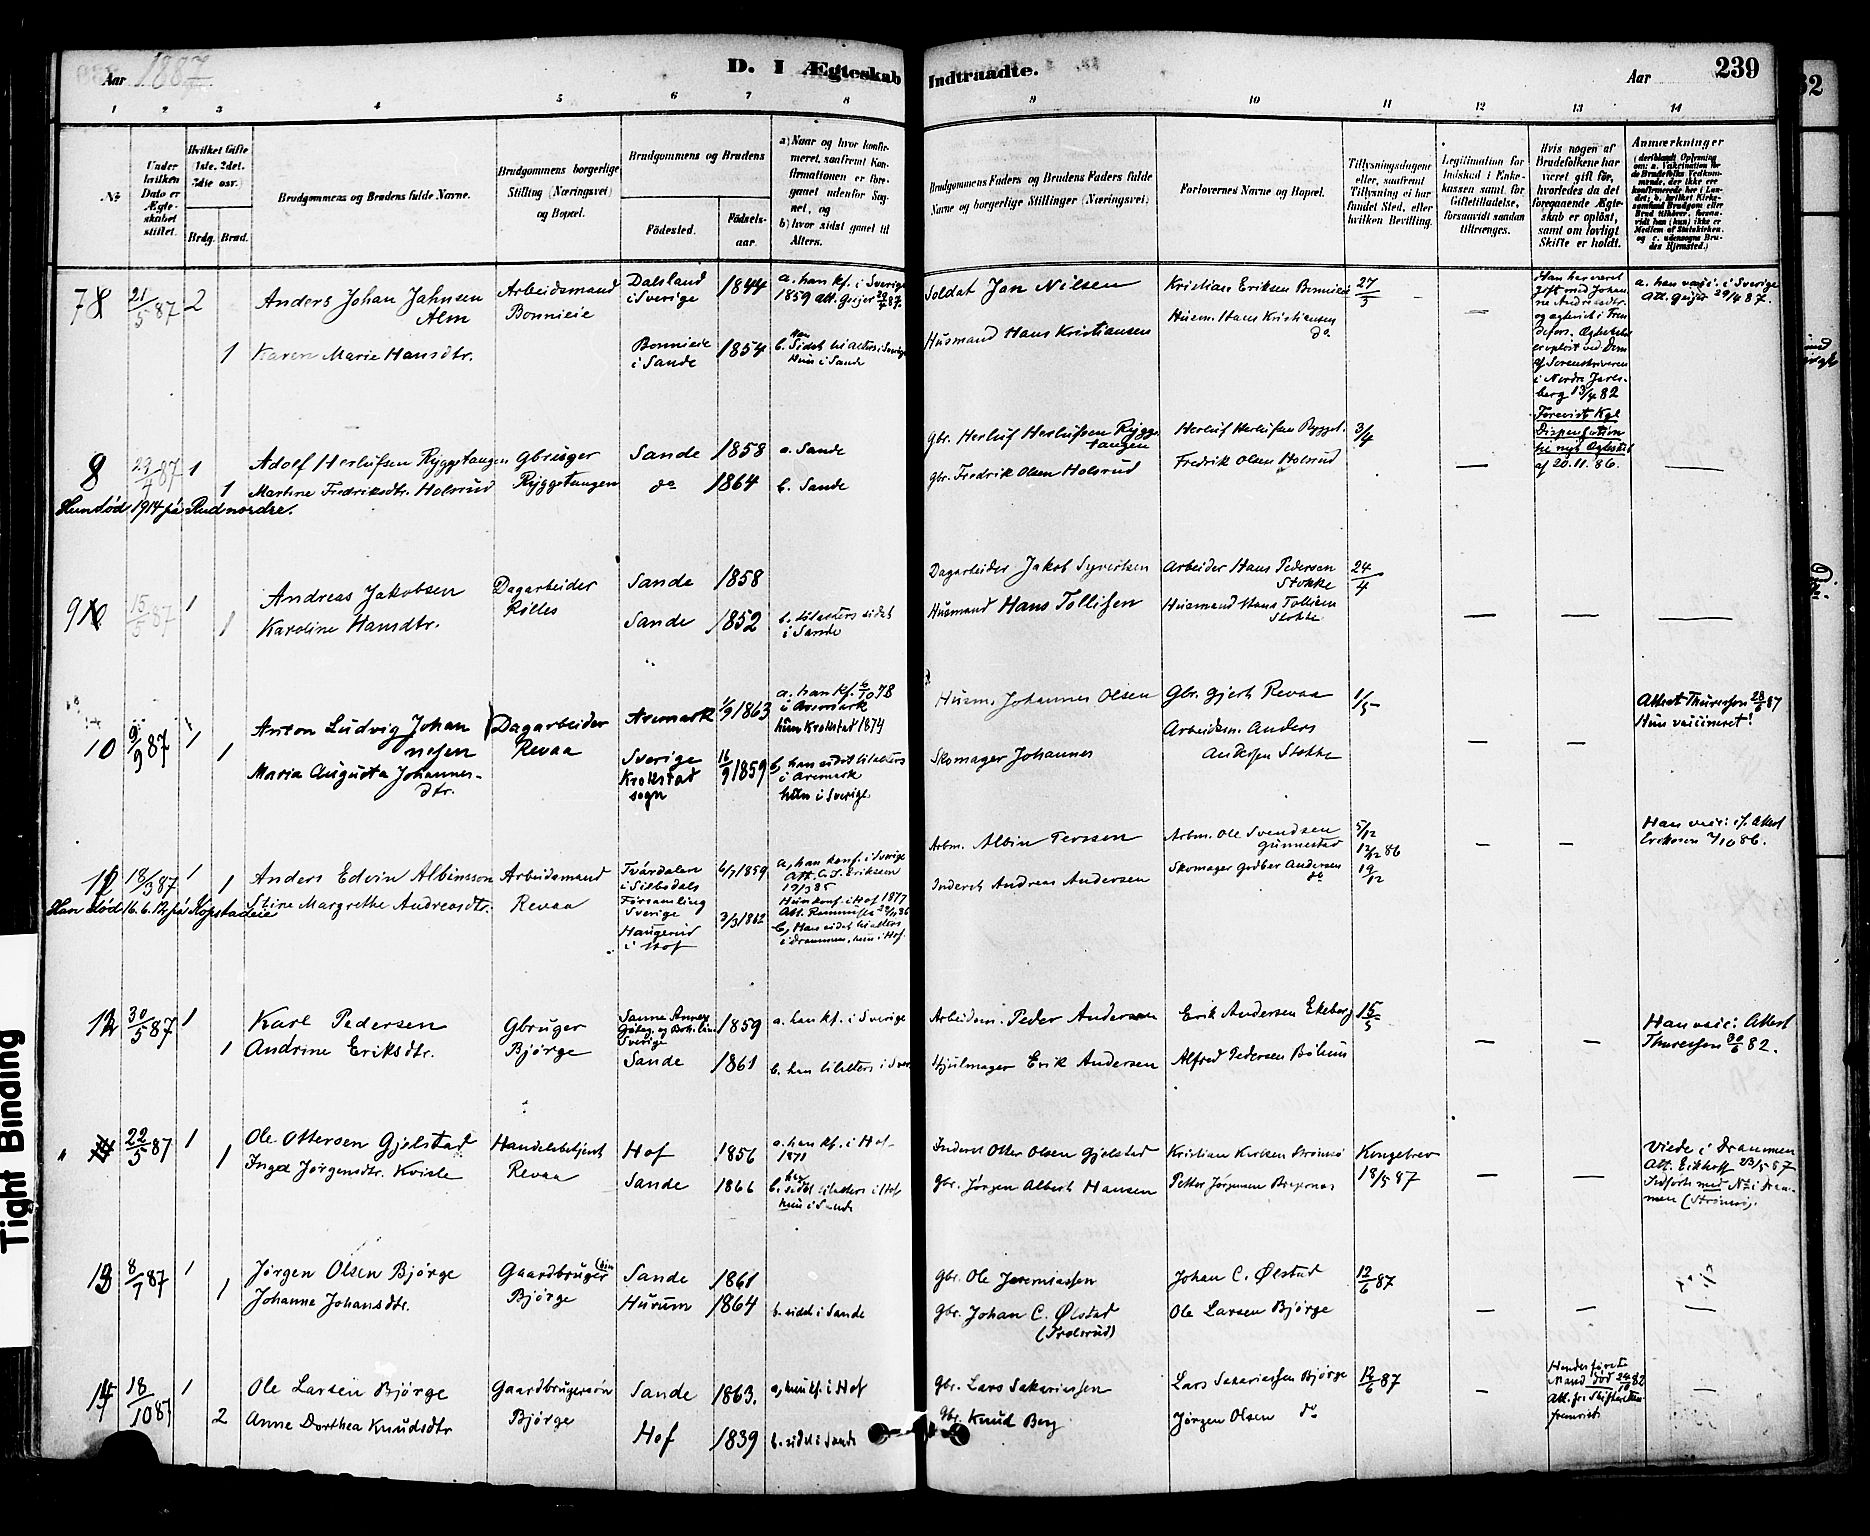 Aar 1887
D. I Ægteskab Indtraadte.
Aar
239
1 2 3 4 5 6 7 8 9 10 11 12 13 14
No
Under hvilken Dato er Ægteskabet stiftet.
Hvilket Gifte (1ste, 2det, 3die osv.)
Brdg. Brud.
Brudgommens og Brudens fulde Navne.
Brudgommens borgerlige Stilling (Næringsvei) og Bopæl.
Brudgommens og Brudens
Födested.
Födselsaar.
a) Naar og hvor konfirmeret, saafremt Konfirmationen er foregaaet udenfor Sognet, og
b) hvor sidst gaaet til Alters.
Brudgommens Faders og Brudens Faders fulde Navne og borgerlige Stillinger (Næringsvei)
Forlovernes Navne og Bopæl.
Tillysningsdagene eller, saafremt Tillysning ei har fundet Sted, efter hvilken Bevilling.
Legitimation for Indskud i Enkekassen samt for Giftetilladelse, forsaavidt saadan tiltrænges.
Hvis nogen af Brudefolkene har været gift för, hvorledes da det foregaaende Ægteskab er oplöst, samt om lovligt Skifte er holdt.
Anmærkninger
7 21/5 87 2
Anders Johan Jahnsen
Alm
Arbeidsmand
Bonnieie
Dalsland
i Sverige
1844
a. han kf. i Sverige
1859 Att. Geijer 29/4 87.
Soldat Jan Nilsen
Kristian Eriksen Bonnieie
27/3
1 Karen Marie Hansdtr.
Bonnieie
i Sande
1854
b. Han Sidst til alters i Sverige
Hun i Sande
Husmand Hans Kristiansen
Husm. Hans Kristiansen
do
Han har været
gift med Johan-
ne Andreasdtr.
er opløst ved Dom
af Sorenskriveren
i Nordre Jarls-
berg 13/4 82
Forevist Kgl
Dispensation
til nyt Ægtesk.
af 20.11.86.
a. han vacc. i Sverige
Att. Geijer 29/4 87.
8 29/4 87 1
Adolf Herlufsen Ryggetangen
Gbruger
Sande 1858
a. Sande
Gbr. Herluf Herlufsen Rygge-
tangen
Herluf Herlufsen Rygget.
3/4
1 Martine Fredriksdtr. Holsrud
Ryggetangen
do 1864
b. Sande
Gbr. Fredrik Olsen Holsrud
Fredrik Olsen Holsrud
Hun död 1914 på Rud nordre.
9 15/5 87 1
Andreas Jakobsen
Dagarbeider
Sande 1858
Dagarbeider Jakob Syvertsen
Arbeider Hans Pedersen
Stokke
24/4
1 Karoline Hansdtr.
Killes
Sande 1852
b. til alters sidst
i Sande
Husmand Hans Tollifsen
Husmand Hans Tollisen
Stokke
10 9/9 87 1
Anton Ludvig Johan
nesen
Dagarbeider
Revaa
Aremark 1/9 1863
a. han kf. 6/10 78
i Aremark
hun Krokstad 1874
Husm. Johannes Olsen
Gbr. Gjert Revaa
1/5
Attest Thuresson 28/6 87
Hun vaccineret!
1 Maria Augusta Johannes-
dtr.
Sverige
Krokstad
sogn
16/9 1859
b. han sidst til alters
i Aremark
hun i Sverige
Skomager Johannes
Arbeidsm. Anders
Andersen Stokke
11 18/3 87 1 1
Anders Edvin Albinsson
Arbeidsmand
Tvärdalen
i Silbodals
Församling
Sverige
6/7 1859
a, han konf. i Sverige
Att. C. J. Eriksen
Arbm. Albin Persson
Arbm. Ole Svendsen
Gunnestad
5/12
12/12 86
19/12
Stine Margrethe Andreasdtr.
Revaa
Haugerud
i Hof
3/3 1862
Hun konf. i Hof 1877
b, Han sidst til alters
i Drammen, hun i Hof.
Inderst Andreas Andersen
Skomager Gudbr Andersen
do
Han död 16.6.12 på Kopstadeie
12 30/5 87 1
Karl Pedersen
Gbruger
Sverige
1859
a. han kf. i Sverige
Arbeidsm. Peder Andersen
Erik Andersen Ekeberg
15/5
Han vacc: Attest
Thuresson 30/6 82.
1 Andrine Eriksdtr.
Bjørge
Sande 1861
b. han til alters i Sver
Hjulmager Erik Andersen
Alfred Pedersen Böhus
" 22/5 87 1
Ole Ottersen Gjelstad
Handelsbetjent
Hof 1856
a. han kf. i Hof
1871
Inderst Otter Olsen Gjelstad
Kristian Eriksen Strømsö
Kongebrev
18/5 87
1 Inga Jørgensdtr. Kvisle
Revaa
Sande 1866
b. sidst til alters i Hof
hun i Sande
Gbr. Jørgen Albert Hansen
Petter Jörgensen Bragernes
Viede i Drammen
Att. Eckhoff 23/5 87
Indført med No i Dram-
men (Strömsö).
13 8/7 87 1
Jørgen Olsen Bjørge
Gaardbruger
Sande 1861
Gbr. Ole Jeremiassen
Johan C. Ølstad
12/6 87
1 Johanne Johansdtr.
Bjørge
Hurum 1864
b. sidst i Sande
Gbr. Johan C. Ølstad
(Trolsrud)
Ole Larsen Bjørge
14 18/10 87 1
Ole Larsen Bjørge
Gaardbrugersön
Sande 1863.
a, hun kf. i Hof
Gbr. Lars Sakariassen
Lars Sakariassen Bjørge
12/6 87
2 Anne Dorthea Knudsdtr
Bjørge
Hof 1839
b. sidst i Sande
Gbr. Knud Berg
Jørgen Olsen do
Hendes förste
Mand död 24/10 82
Att. fra Skifteretten
fremvist
Tight Binding